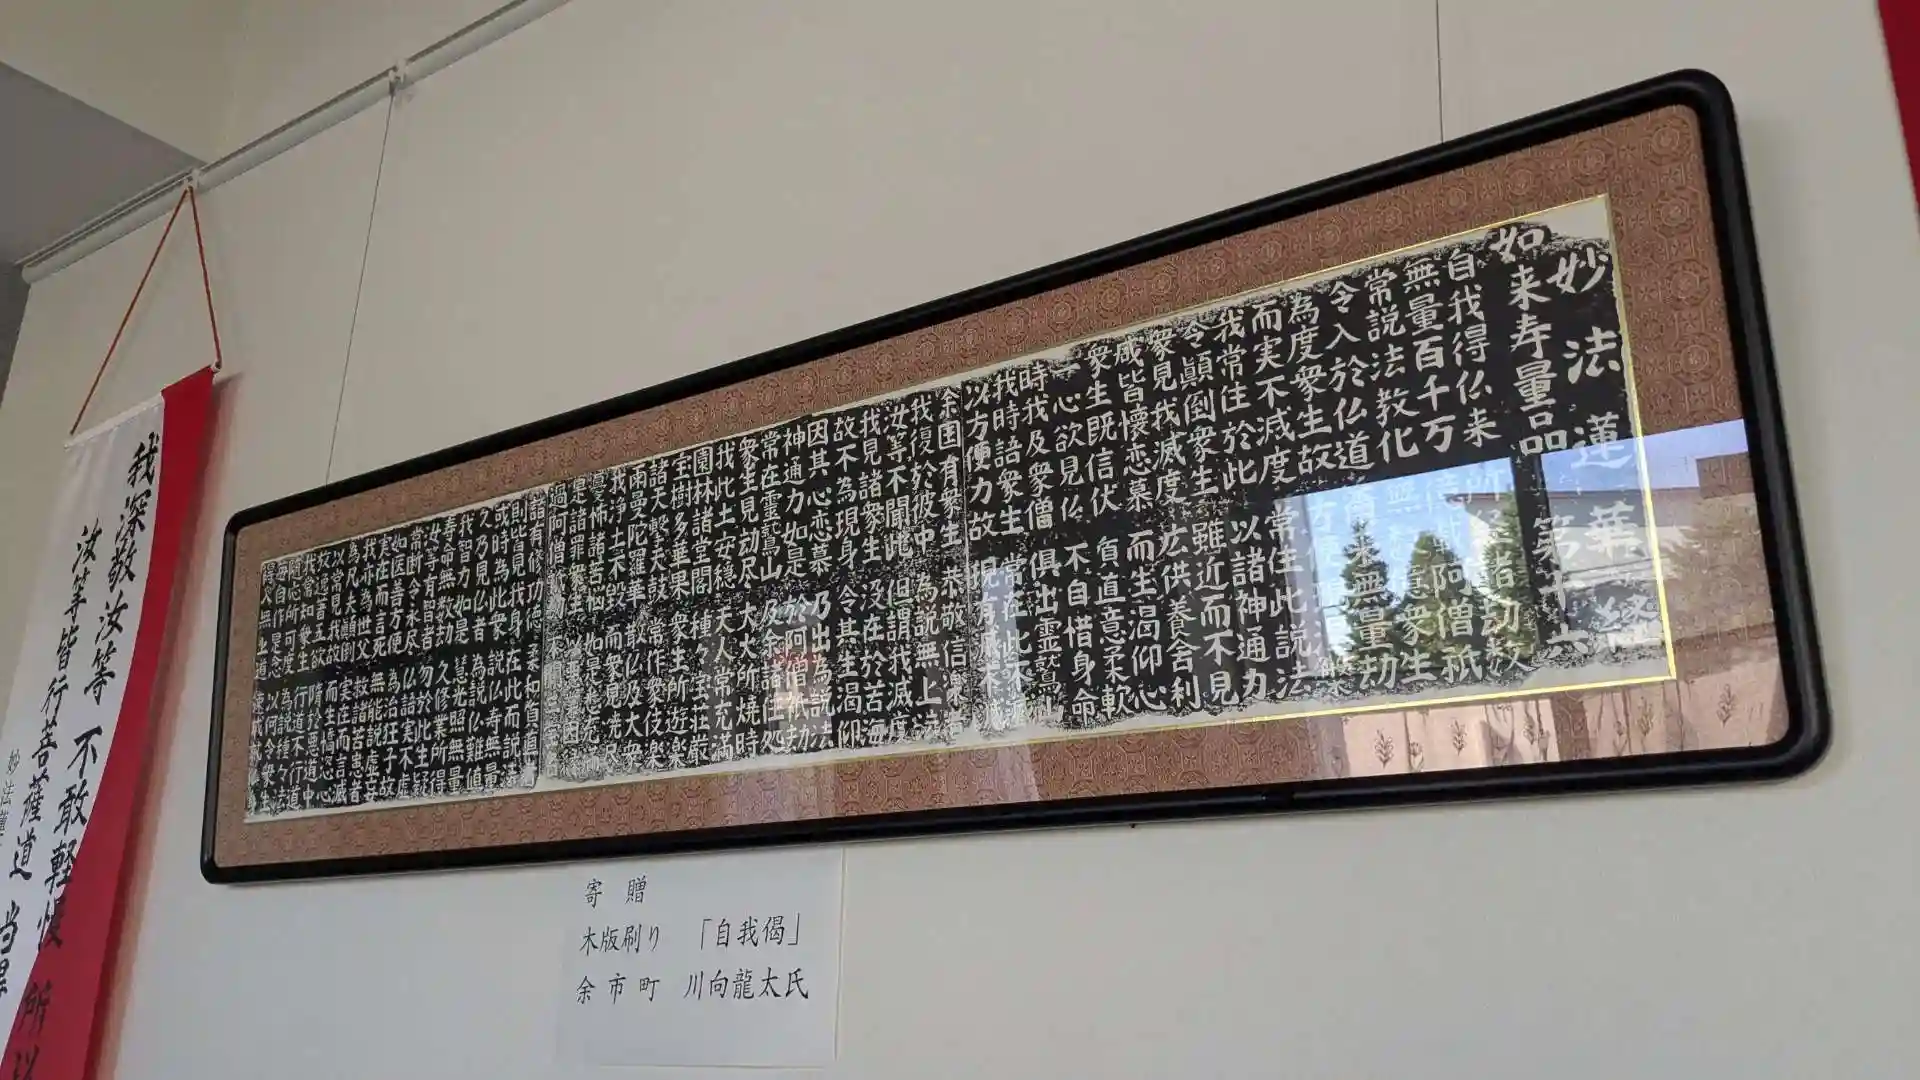 妙法蓮華経
如来寿量品第十六
自我得仏来 所経諸劫数
無量百千万 億載阿僧祇
常説法教化 無数億衆生
令入於仏道 爾来無量劫
為度衆生故 方便現涅槃
而実不滅度 常住此説法
我常住於此 以諸神通力
令顛倒衆生 雖近而不見
衆見我滅度 広供養舎利
咸皆懐恋慕 而生渇仰心
衆生既信伏 質直意柔軟
一心欲見仏 不自惜身命
時我及衆僧 倶出霊鷲山
我時語衆生 常在此不滅
以方便力故 現有滅不滅
余国有衆生 恭敬信楽者
我復於彼中 為説無上法
汝等不聞此 但謂我滅度
我見諸衆生 没在於苦海
故不為現身 令其生渇仰
因其心恋慕 乃出為説法
神通力如是 於阿僧祇劫
常在霊鷲山 及余諸住処
衆生見劫尽 大火所焼時
我此土安穏 天人常充満
園林諸堂閣 種々宝荘厳
宝樹多華果 衆生所遊楽
諸天撃天鼓 常作衆伎楽
雨曼陀羅華 散仏及大衆
我浄土不毀 而衆見焼尽
憂怖諸苦悩 如是悉充満
是諸罪衆生 以悪業因縁
過阿僧祇劫 不聞三宝名
諸有修功徳 柔和質直者
則皆見我身 在此而説法
或時為此衆 説仏寿無量
久乃見仏者 為説仏難値
我智力如是 慧光照無量
寿命無数劫 久修業所得
汝等有智者 勿於此生疑
当断令永尽 仏語実不虚
如医善方便 為治狂子故
実在而言死 無能説虚妄
我亦為世父 救諸苦患者
為凡夫顛倒 実在而言滅
以常見我故 而生憍恣心
放逸著五欲 堕於悪道中
我常知衆生 行道不行道
随応所可度 為説種々法
毎自作是念 以何令衆生
得入無上道 速成就仏身
我深敬汝等 不敢軽慢 所以
汝等皆行菩薩道 当得
妙法蓮
寄 贈
木版刷り 「自我偈」
余市町 川向龍太氏